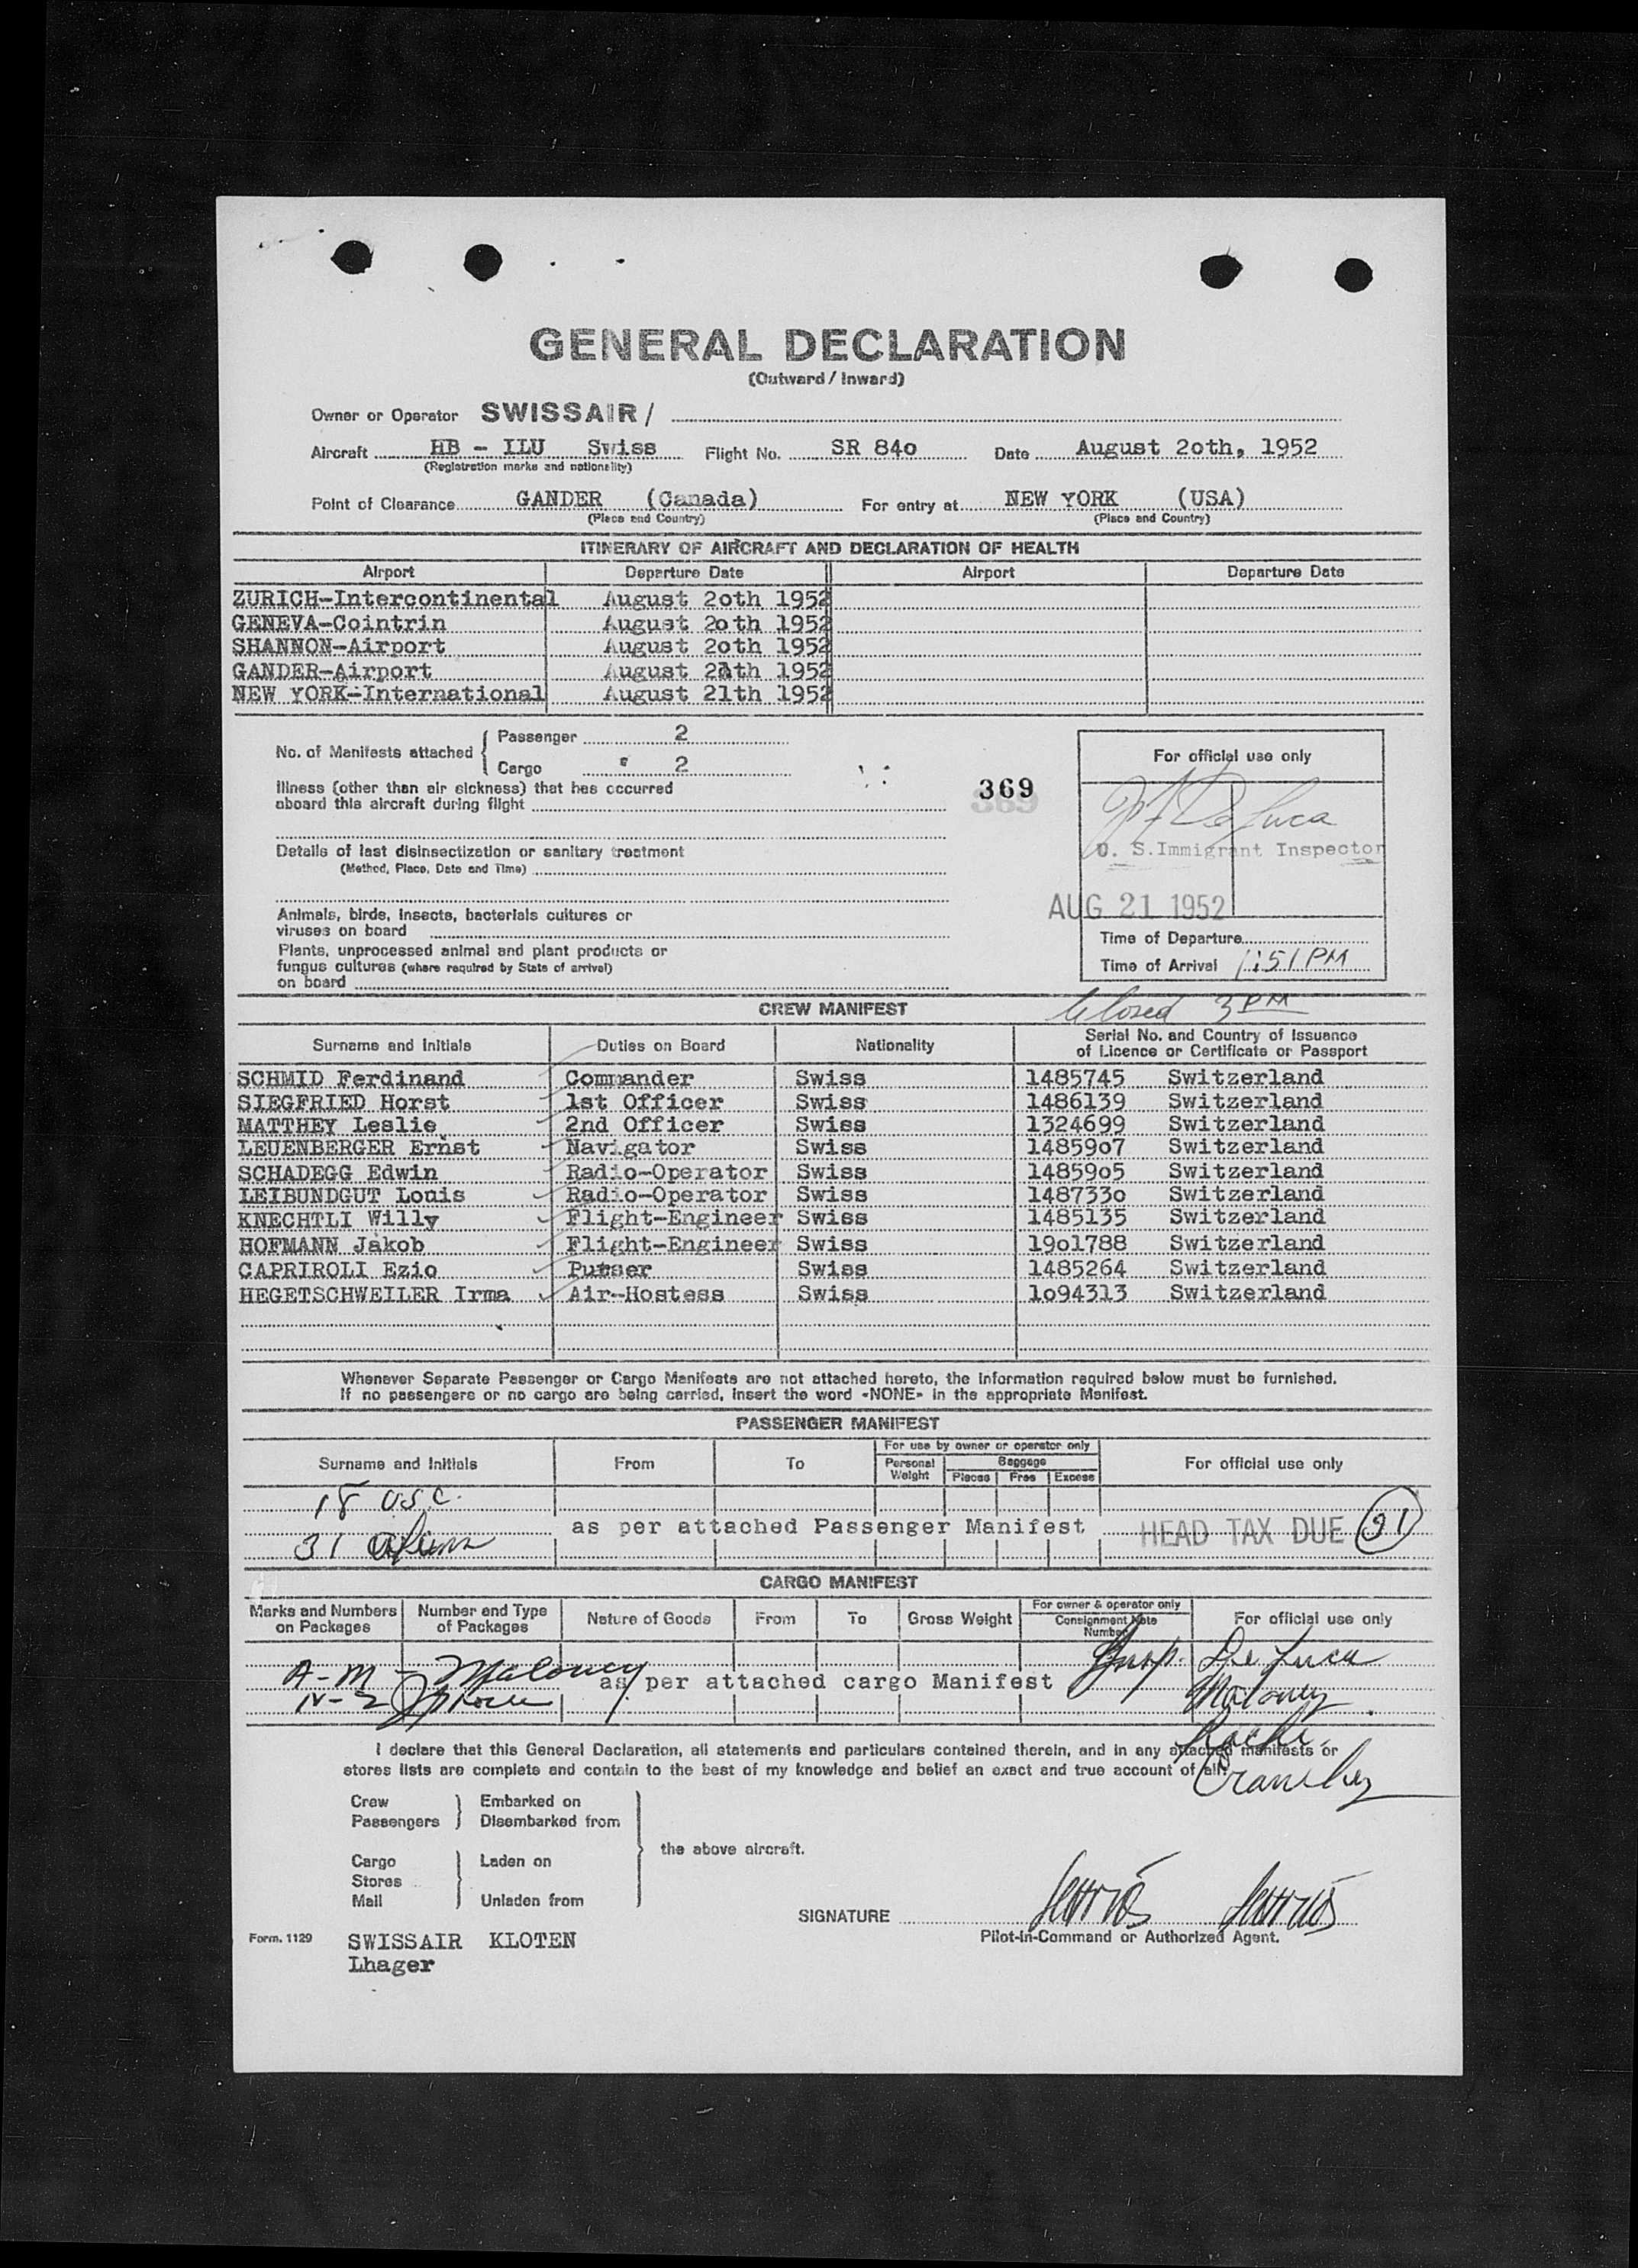 GENERAL DECLARATION
(Outward / Inward)
Owner or Operator SWISSAIR /
Aircraft HB - ILU Swiss Flight No. SR 84o Date August 2oth, 1952
(Registration marks and nationality)
Point of Clearance GANDER (Canada) For entry at NEW YORK (USA)
(Place and Country) (Place and Country)
ITINERARY OF AIRCRAFT AND DECLARATION OF HEALTH
Airport Departure Date Airport Departure Date
ZURICH-Intercontinental August 2oth 1952
GENEVA-Cointrin August 2oth 1952
SHANNON-Airport August 2oth 1952
GANDER-Airport August 21th 1952
NEW YORK-International August 21th 1952
No. of Manifests attached Passenger 2
Cargo 2
For official use only
Illness (other than air sickness) that has occurred
aboard this aircraft during flight
369
J F De Luca
U. S. Immigrant Inspector
Details of last disinsectization or sanitary treatment
(Method, Place, Date and Time)
AUG 21 1952
Animals, birds, insects, bacterials cultures or
viruses on board
Time of Departure
Plants, unprocessed animal and plant products or
fungus cultures (where required by State of arrival)
on board
Time of Arrival 1:51 PM
Closed 3 PM
CREW MANIFEST
Surname and Initials Duties on Board Nationality Serial No. and Country of Issuance
of Licence or Certificate or Passport
SCHMID Ferdinand Commander Swiss 1485745 Switzerland
SIEGFRIED Horst 1st Officer Swiss 1486139 Switzerland
MATTHEY Leslie 2nd Officer Swiss 1324699 Switzerland
LEUENBERGER Ernst Navigator Swiss 14859o7 Switzerland
SCHADEGG Edwin Radio-Operator Swiss 14859o5 Switzerland
LEIBUNDGUT Louis Radio-Operator Swiss 148733o Switzerland
KNECHTLI Willy Flight-Engineer Swiss 1485135 Switzerland
HOFMANN Jakob Flight-Engineer Swiss 19o1788 Switzerland
CAPRIROLI Ezio Purser Swiss 1485264 Switzerland
HEGETSCHWEILER Irma Air-Hostess Swiss 1o94313 Switzerland
Whenever Separate Passenger or Cargo Manifests are not attached hereto, the information required below must be furnished.
If no passengers or no cargo are being carried, insert the word «NONE» in the appropriate Manifest.
PASSENGER MANIFEST
For use by owner or operator only
Surname and Initials From To Personal Weight Baggage For official use only
Pieces Free Excess
18 USC.
as per attached Passenger Manifest HEAD TAX DUE 31
31 aliens
CARGO MANIFEST
Marks and Numbers on Packages Number and Type of Packages Nature of Goods From To Gross Weight For owner & operator only Consignment Note Number For official use only
Insp. De Luca
A-M - Maloney
as per attached cargo Manifest
Maloney
N-Z Roche
Roche
I declare that this General Declaration, all statements and particulars contained therein, and in any attached manifests or
stores lists are complete and contain to the best of my knowledge and belief an exact and true account of all:
Crew Embarked on
Passengers Disembarked from
the above aircraft.
Cargo Laden on
Stores
Mail Unladen from
SIGNATURE
Pilot-in-Command or Authorized Agent.
Form. 1129 SWISSAIR KLOTEN
Lhager